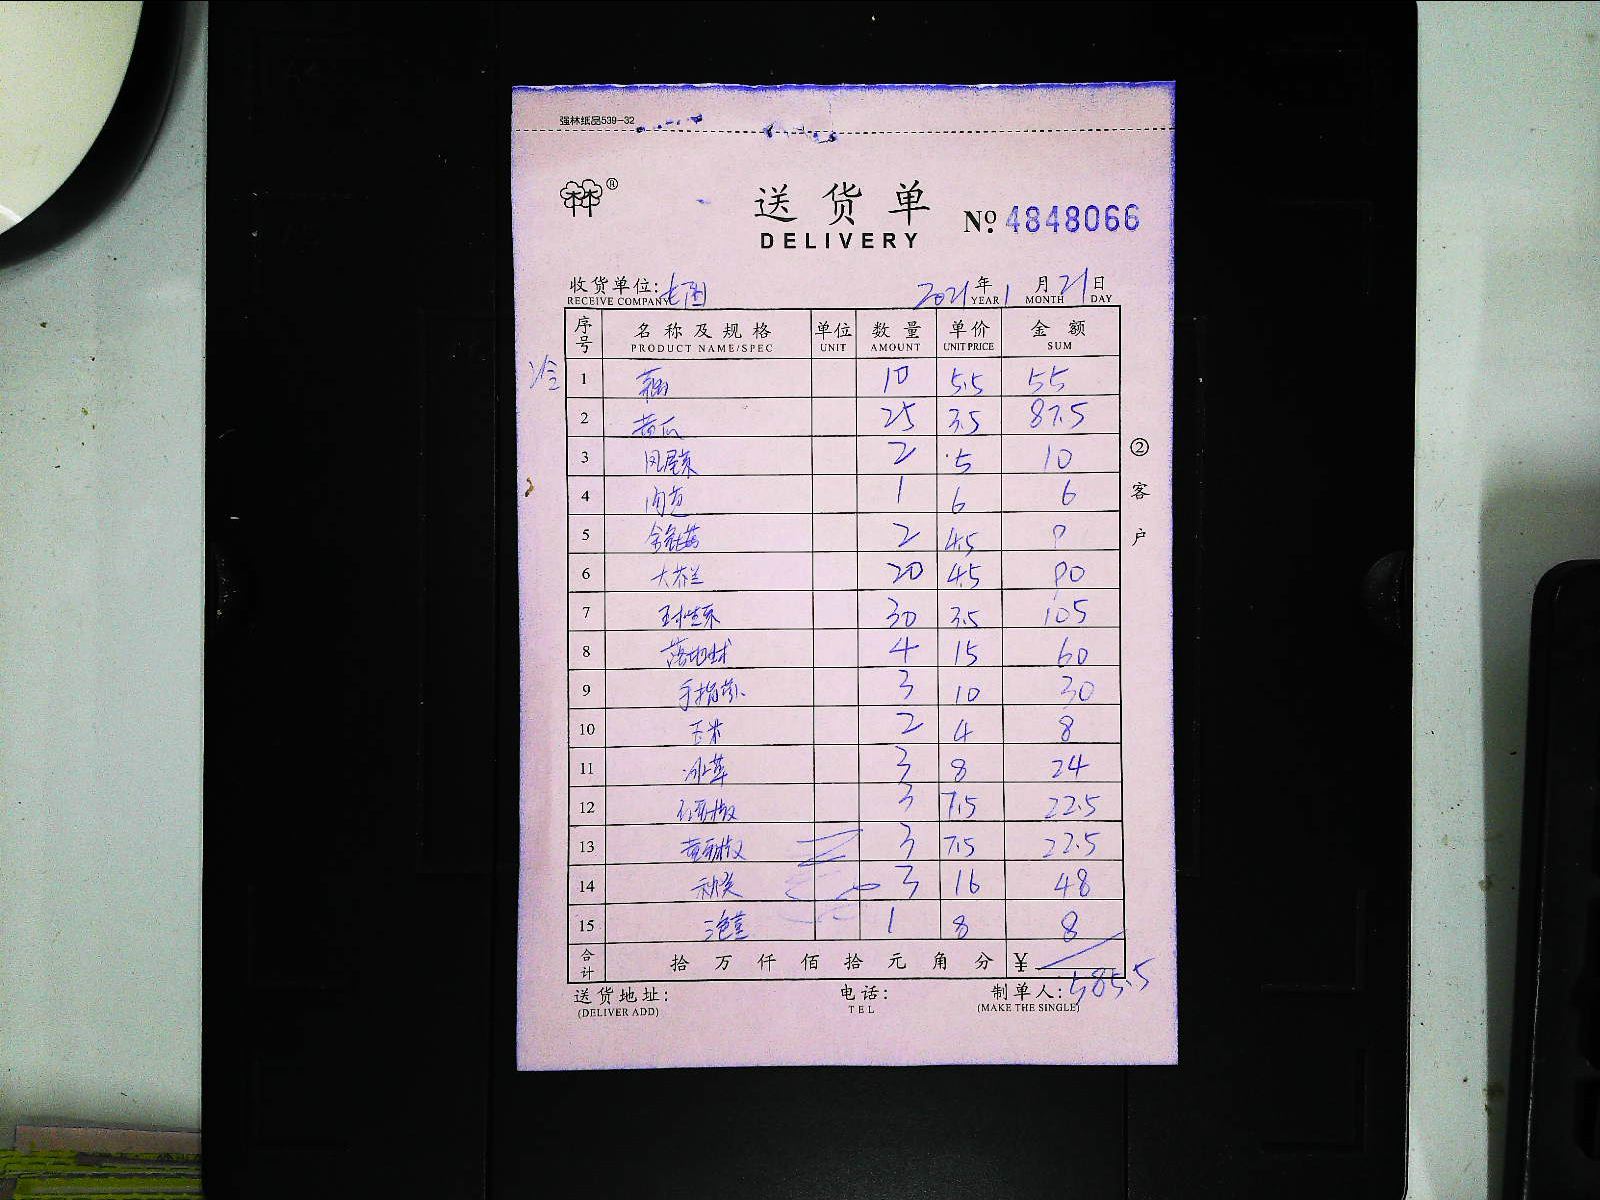 强林纸品539-32
®
送货单
DELIVERY
No. 4848066
收货单位: 2021年1月21日
RECEIVE COMPANY YEAR MONTH DAY
序号 名称及规格 单位 数量 单价 金额
PRODUCT NAME/SPEC UNIT AMOUNT UNIT PRICE SUM
冷
1 10 5.5 55
2 黄瓜 25 3.5 87.5
3 2 5 10
4 1 6 6
5 2 4.5 9
6 大芥兰 20 4.5 90
7 30 3.5 105
8 4 15 60
9 3 10 30
10 玉米 2 4 8
11 3 8 24
12 3 7.5 22.5
13 3 7.5 22.5
14 秋葵 3 16 48
15 1 8 8
② 客户
合计 拾万仟佰拾元角分 ¥
585.5
送货地址: 电话: 制单人:
(DELIVER ADD) TEL (MAKE THE SINGLE)